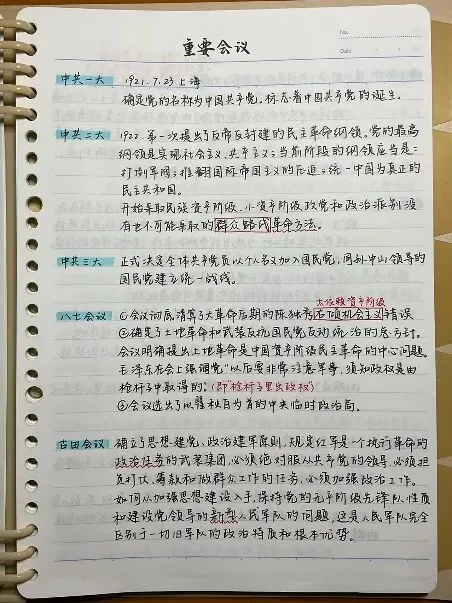 重要会议
No.
Date
中共一大 1921.7.23 上海
确定党的名称为中国共产党。标志着中国共产党的诞生。
中共二大 1922. 第一次提出了反帝反封建的民主革命纲领。党的最高
纲领是实现社会主义、共产主义；当前阶段的纲领应当是：
打倒军阀；推翻国际帝国主义的压迫；统一中国为真正的
民主共和国。
开始采取民族资产阶级、小资产阶级政党和政治派别没
有也不可能采取的群众路线革命方法。
中共三大 正式决定全体共产党员以个人名义加入国民党，同孙中山领导的
国民党建立统一战线。
太依赖资产阶级
八七会议 ①会议彻底清算了大革命后期的陈独秀右倾机会主义错误
②确定了土地革命和武装反抗国民党反动统治的总方针。
会议明确提出土地革命是中国资产阶级民主革命的中心问题。
毛泽东在会上强调党"以后要非常注意军事，须知政权是由
枪杆子中取得的"(即枪杆子里出政权)
③会议选出了以瞿秋白为首的中央临时政治局。
古田会议 确立了思想建党、政治建军原则，规定红军是一个执行革命的
政治任务的武装集团，必须绝对服从共产党的领导，必须担
负打仗、筹款和做群众工作的任务，必须加强政治工作。
如何从加强思想建设入手，保持党的无产阶级先锋队性质
和建设党领导的新型人民军队的问题，这是人民军队完全
区别于一切旧军队的政治特质和根本优势。